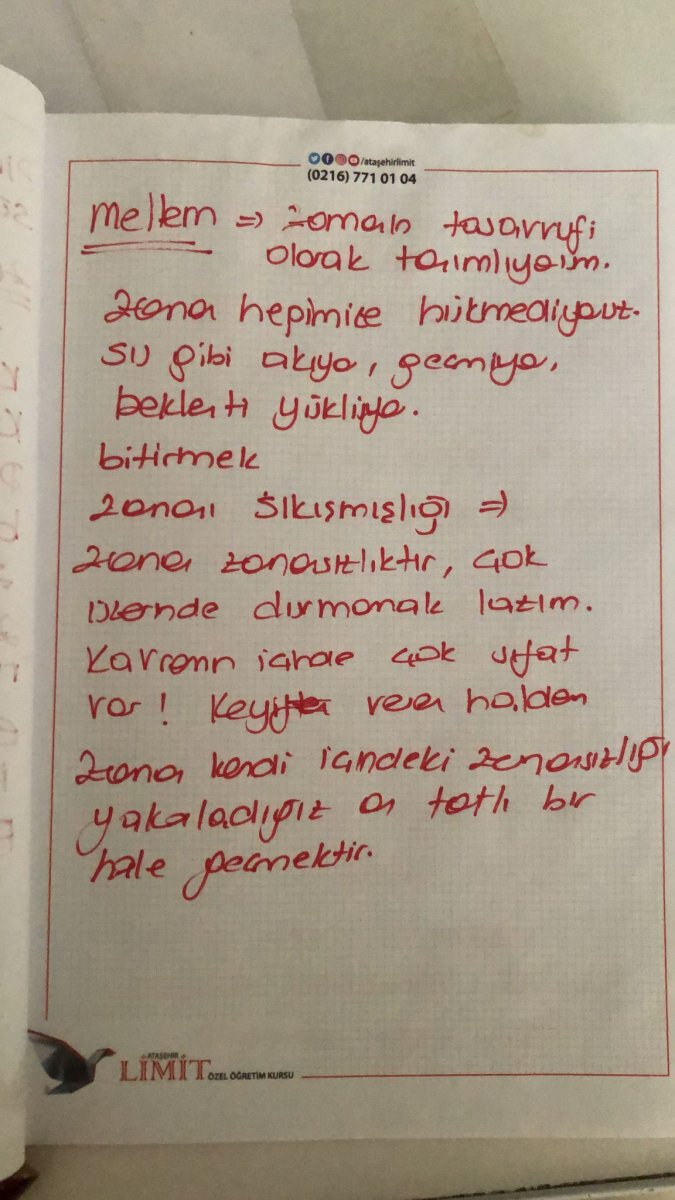 /ataşehirlimit
(0216) 771 01 04
Meltem => zamanı tasarrufi
olarak tanımlıyorum.
Zaman hepimize hükmediyor.
Su gibi akıyo, geçmiyo,
beklenti yüklüyo.
bitirmek
Zaman Sıkışmışlığı =>
Zaman zamansızlıktır, çok
üzerinde durmamak lazım.
Kavramın içinde çok sıfat
var! Keyif veren halden
Zaman kendi içindeki zamansızlığı
yakaladığız an tatlı bir
hale geçmektir.
ATAŞEHİR
LİMİT ÖZEL ÖĞRETİM KURSU